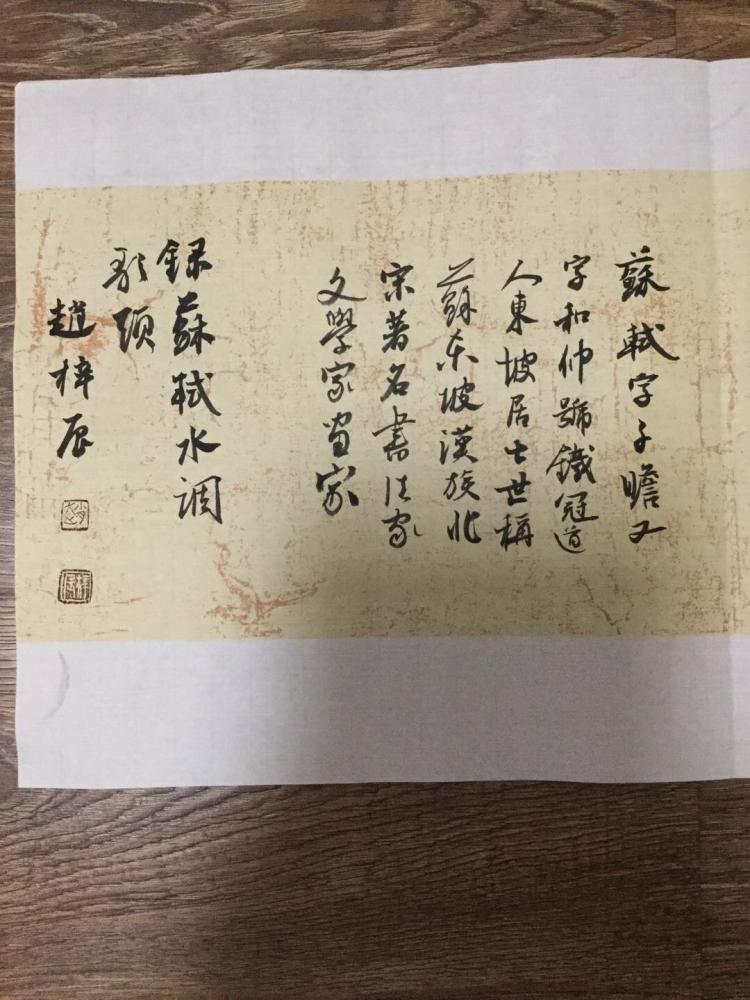 蘇軾字子瞻又
字和仲號鐵冠道
人東坡居士世稱
蘇东坡漢族北
宋著名書法家
文學家画家
録蘇軾水调
歌頭
趙梓辰